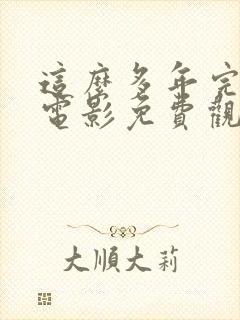 這麼多年完
電影免費觀
大順大莉